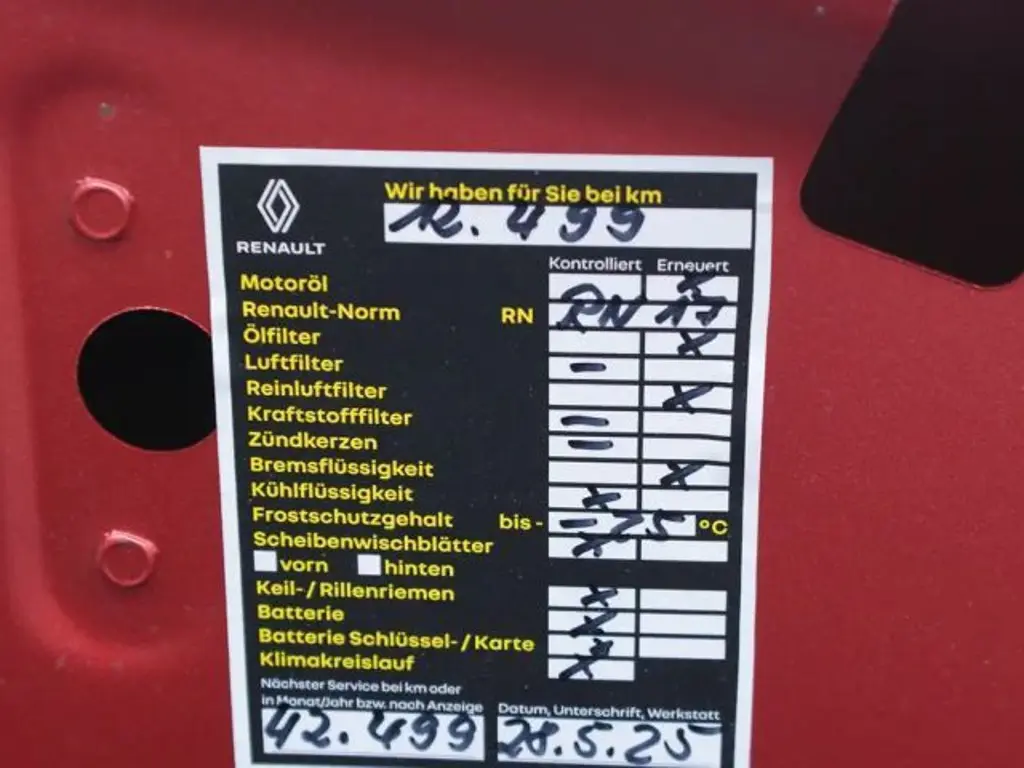 Wir haben für Sie bei km
12.499
RENAULT
Kontrolliert Erneuert
Motoröl x
Renault-Norm RN RN 17
Ölfilter x
Luftfilter –
Reinluftfilter x
Kraftstofffilter –
Zündkerzen –
Bremsflüssigkeit x
Kühlflüssigkeit x
Frostschutzgehalt bis - -25 °C
Scheibenwischblätter x
vorn hinten
Keil-/Rillenriemen x
Batterie x
Batterie Schlüssel-/Karte x
Klimakreislauf x
Nächster Service bei km oder
in Monat/Jahr bzw. nach Anzeige Datum, Unterschrift, Werkstatt
42.499 28.5.25